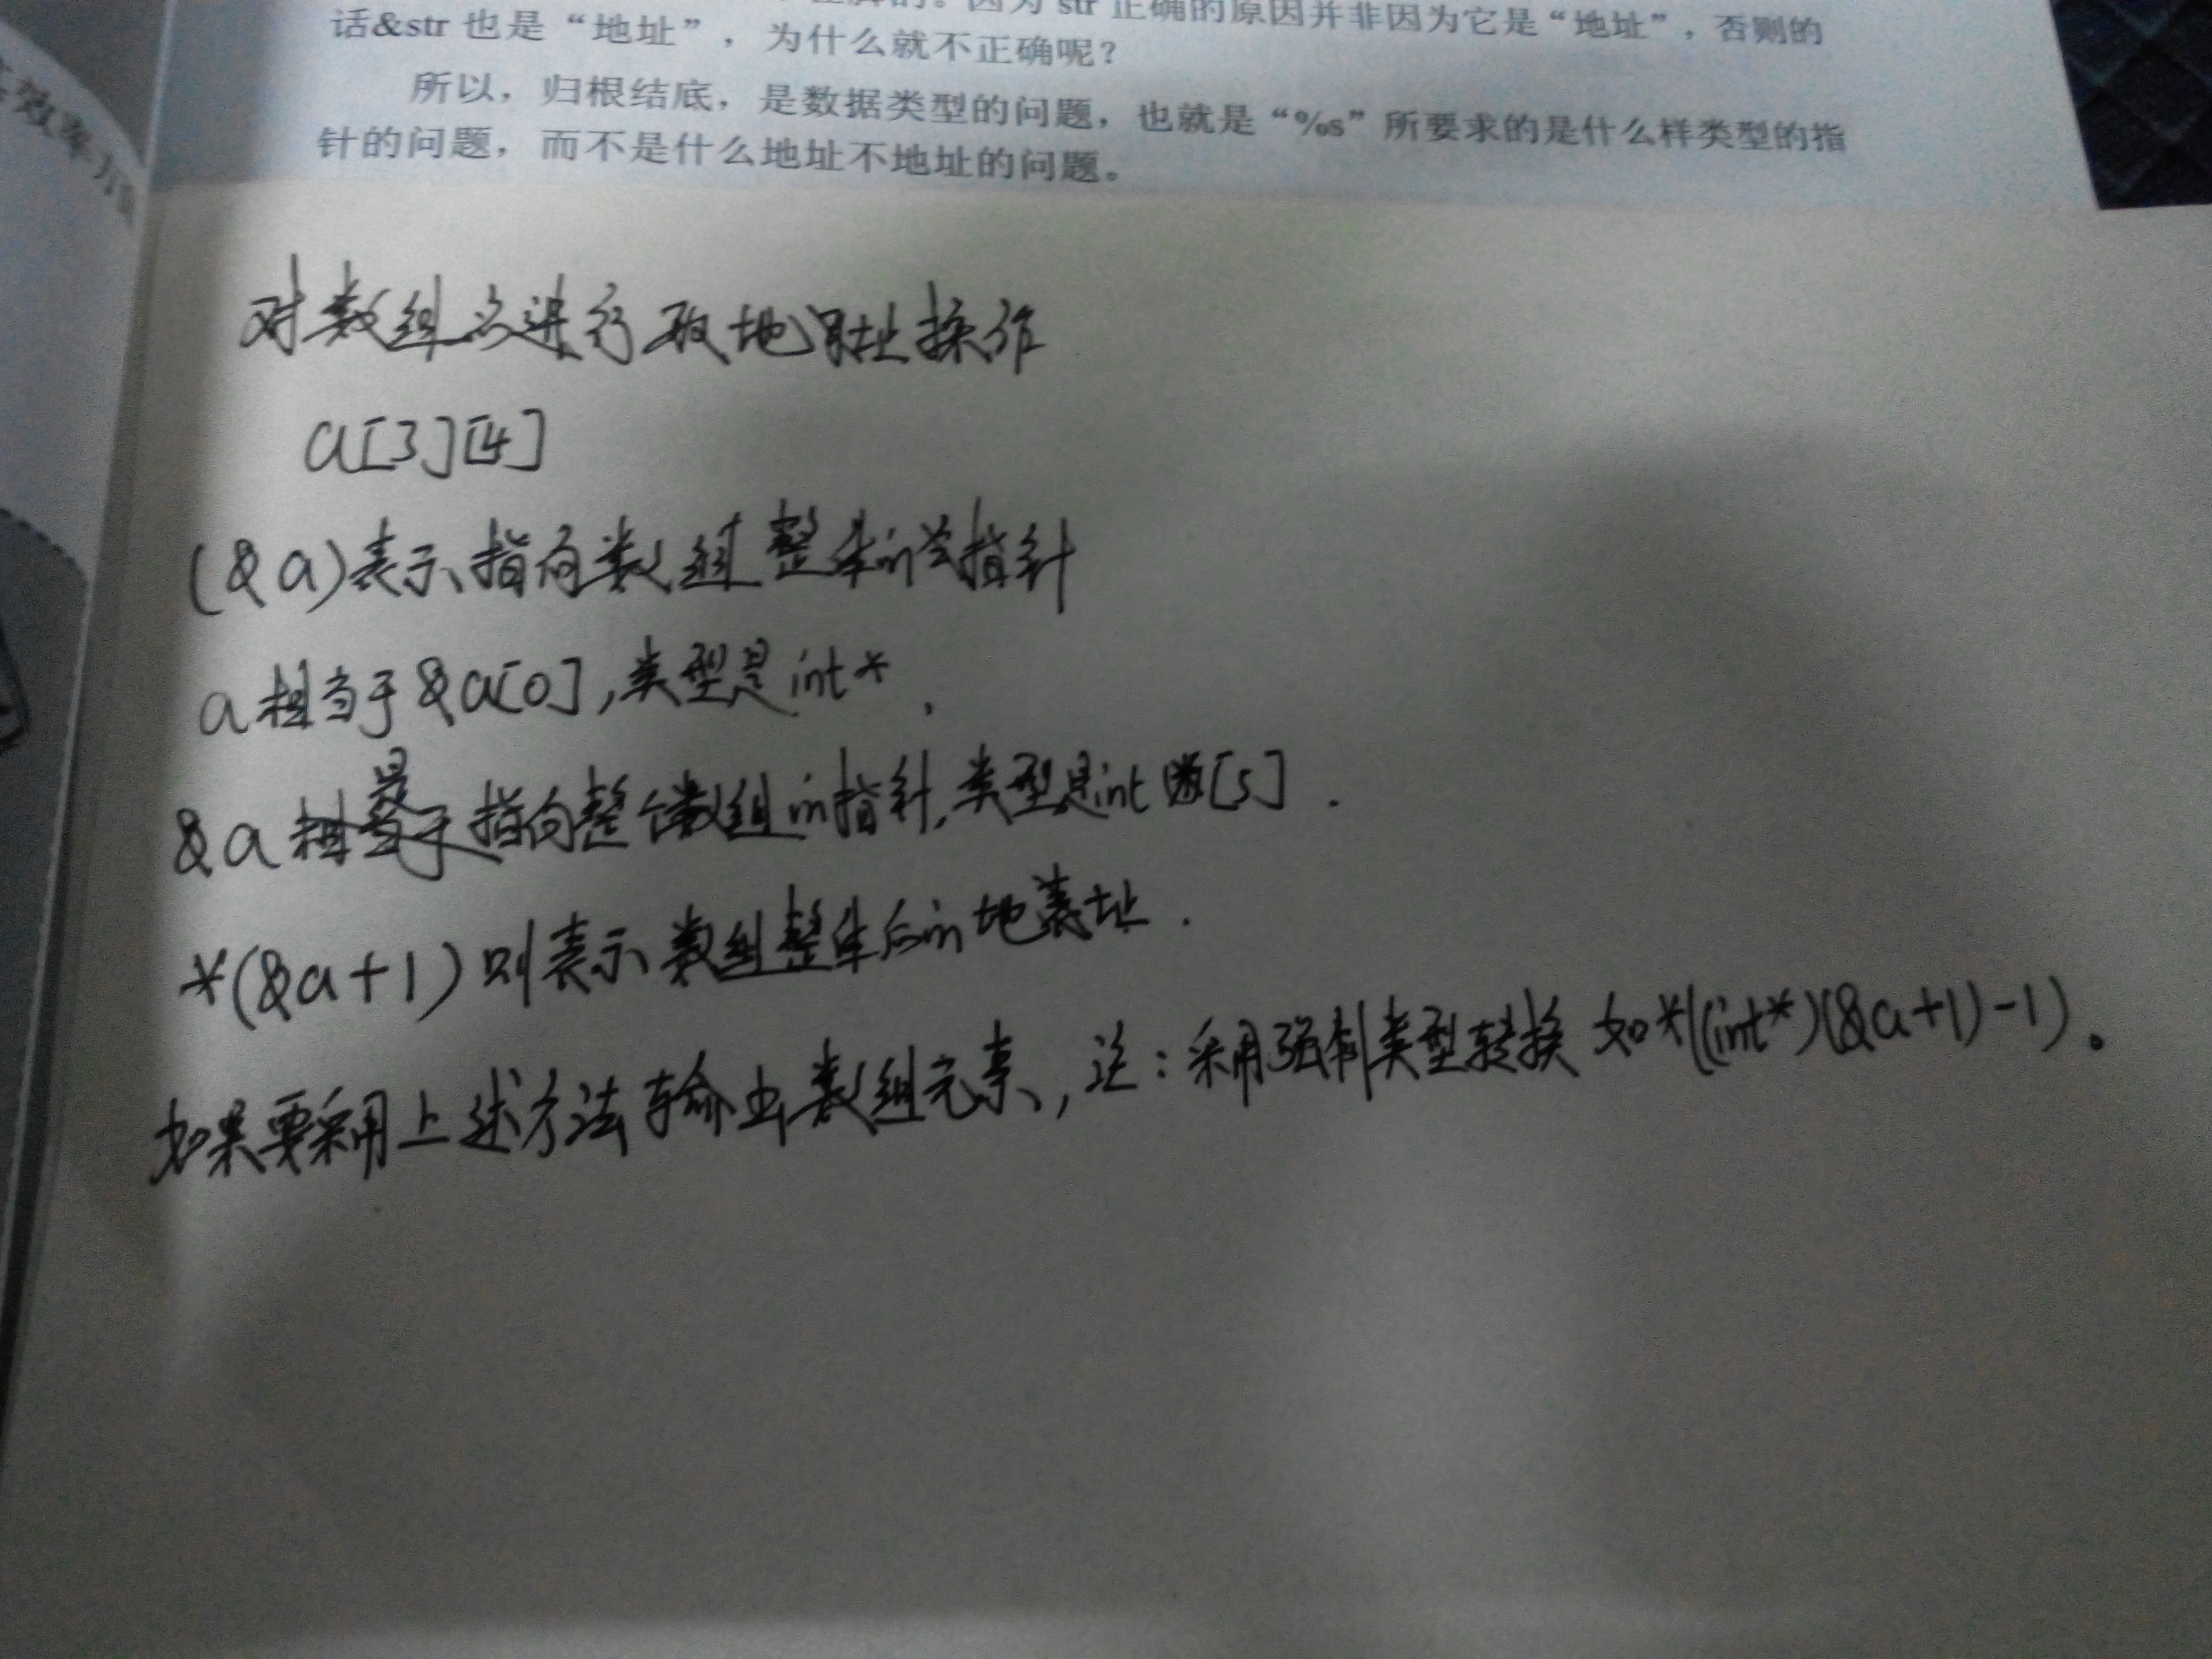 因为 str 正确的原因并非因为它是“地址”，否则的
话&str 也是“地址”，为什么就不正确呢？
所以，归根结底，是数据类型的问题，也就是“%s”所要求的是什么样类型的指
针的问题，而不是什么地址不地址的问题。
效率方面
对数组名进行取地址操作
a[3][4]
(&a)表示指向数组整体的指针
a相当于&a[0],类型是int*,
&a是指向整个数组的指针,类型是int[5].
*(&a+1)则表示数组整体后的地址.
如果要采用上述方法输出数组元素,注:采用强制类型转换 如*((int*)(&a+1)-1)。